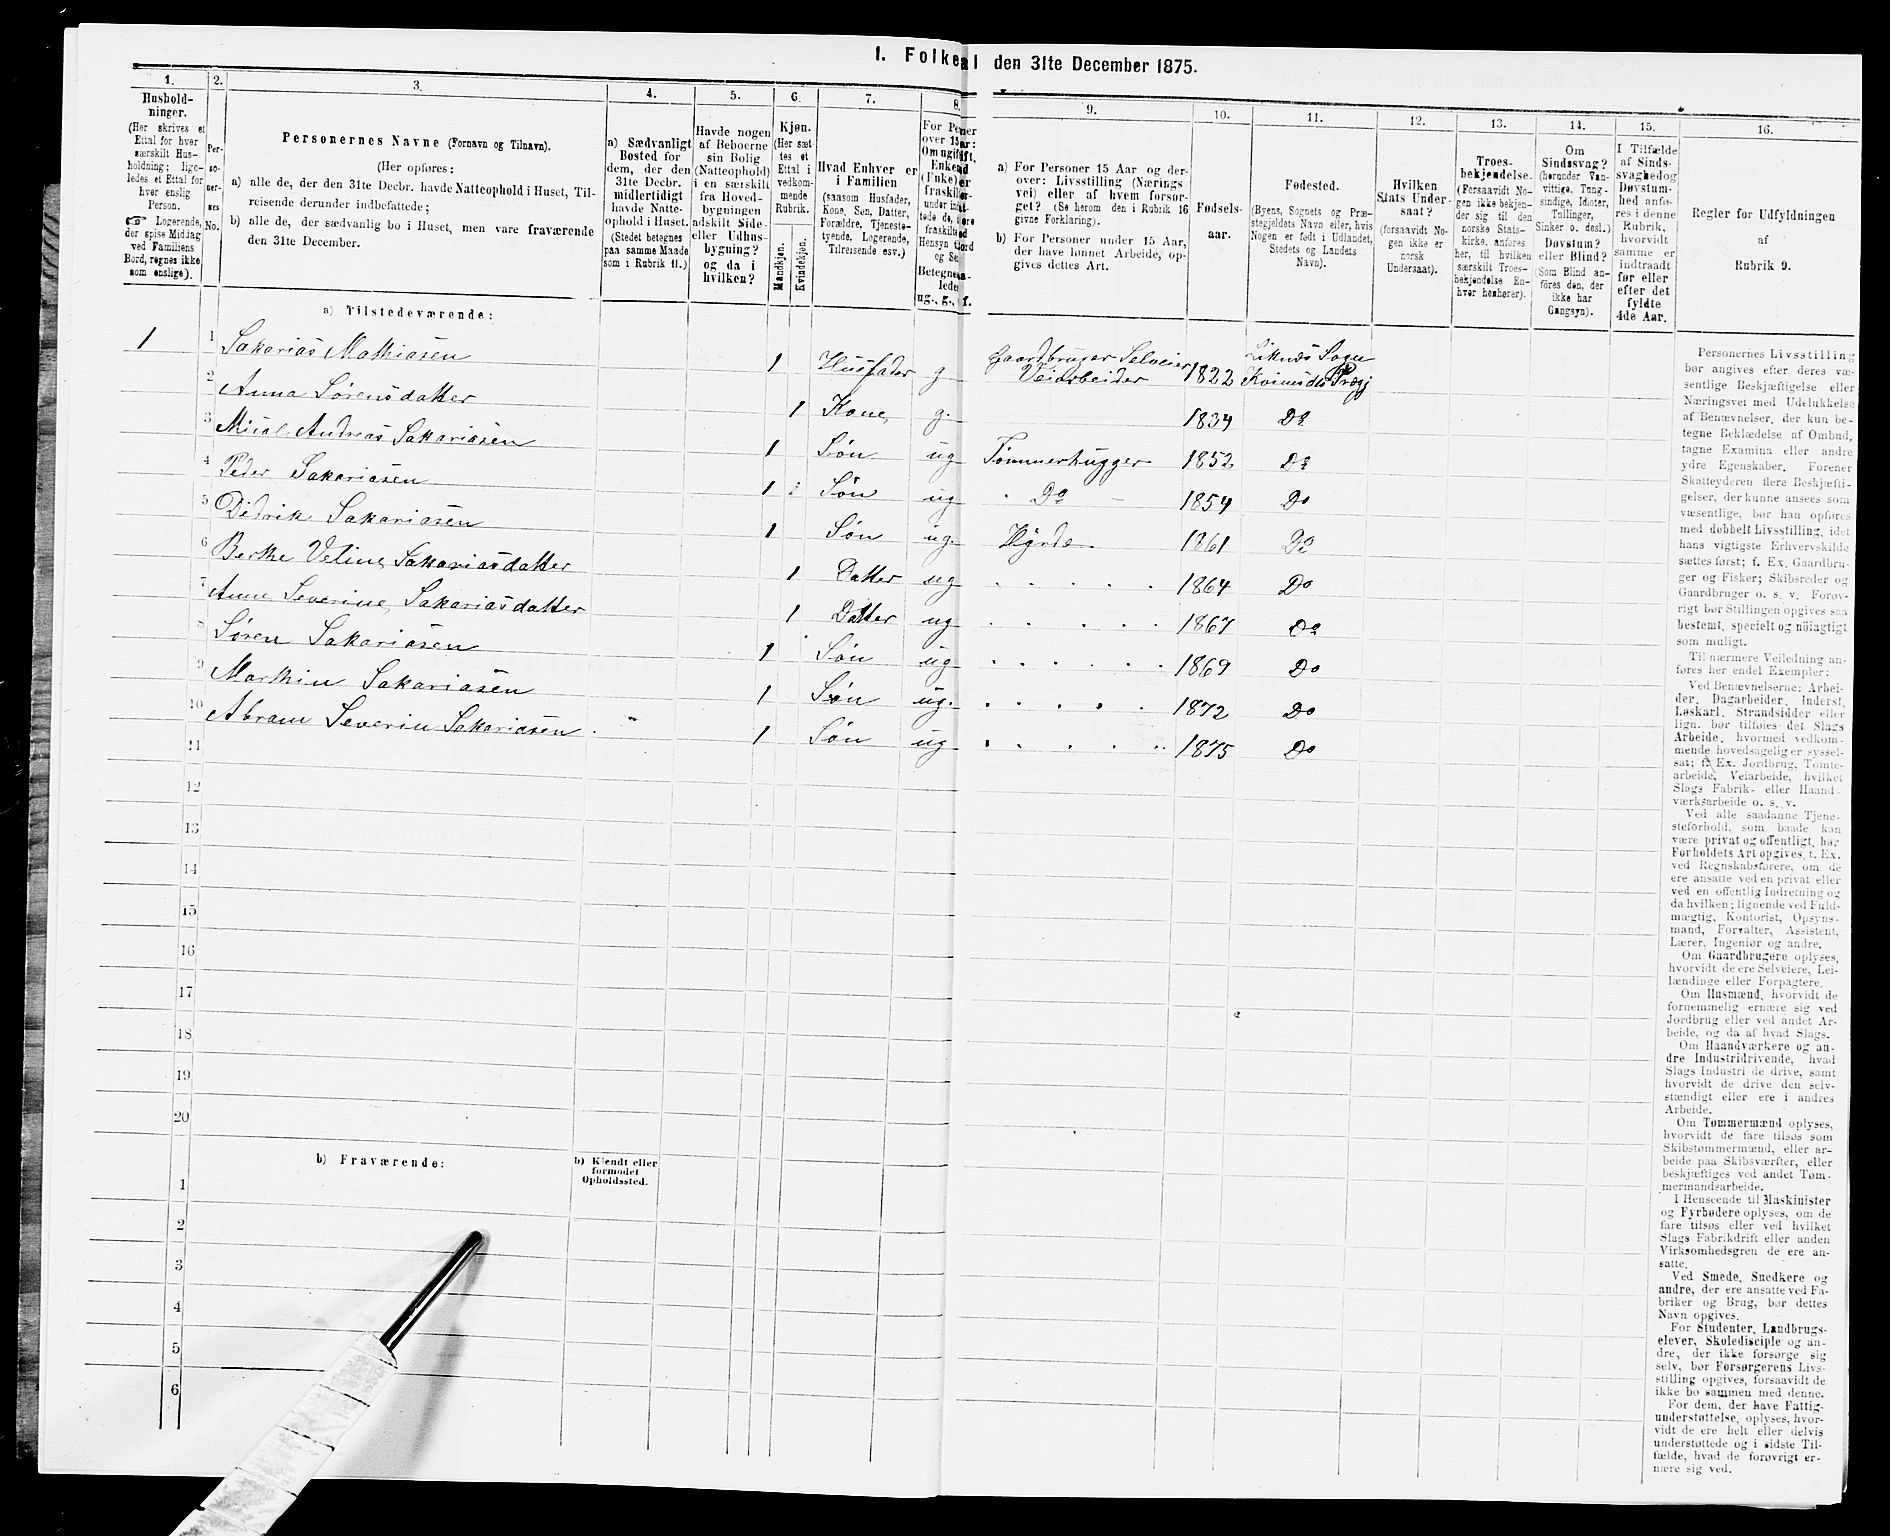 1. Folketal den 31te December 1875.
1.
2.
3.
4.
5.
6.
7.
8.
9.
10.
11.
12.
13.
14.
15.
16.
Hushold-
ninger.
(Her skrives et
Ettal for hver
særskilt Hus-
holdning; lige-
ledes et Ettal for
hver enslig
Person.
☞ Logerende,
der spise Middag
ved Familiens
Bord, regnes ikke
som enslige).
Per-
so-
ner-
nes
No.
Personernes Navne (Fornavn og Tilnavn).
(Her opføres:
a) alle de, der den 31te Decbr. havde Natteophold i Huset, Til-
reisende derunder indbefattede;
b) alle de, der sædvanlig bo i Huset, men vare fraværende
den 31te December.
a) Sædvanligt
Bosted for
dem, der den
31te Decbr.
midlertidigt
havde Natte-
ophold i Huset.
(Stedet betegnes
paa samme Maade
som i Rubrik 11.)
Havde nogen
af Beboerne
sin Bolig
(Natteophold)
i en særskilt
fra Hoved-
bygningen
adskilt Side-
eller Udhus-
bygning?
og da i
hvilken?
Kjøn.
(Her sæt-
tes et
Ettal i
vedkom-
mende
Rubrik.
Mandkjøn.
Kvindekjøn.
Hvad Enhver er
i Familien
(saasom Husfader,
Kone, Søn, Datter,
Forældre, Tjeneste-
tyende, Logerende,
Tilreisende osv.)
ug., g., f.
a) For Personer 15 Aar og der-
over: Livsstilling (Nærings
vei) eller af hvem forsør-
get? (Se herom den i Rubrik 16
givne Forklaring).
b) For Personer under 15 Aar,
der have lønnet Arbeide, op-
gives dettes Art.
Fødsels-
aar.
Fødested.
(Byens, Sognets og Præ-
stegjeldets Navn eller, hvis
Nogen er født i Udlandet,
Stedets og Landets
Navn).
Hvilken
Stats Under-
saat?
(forsaavidt No-
gen ikke er
norsk
Undersaat).
Troes-
bekjendelse.
(Forsaavidt No-
gen ikke bekjen-
der sig til den
norske Stats-
kirke, anføres
her, til hvilken
særskilt Troes-
bekjendelse En-
hver henhører).
Om
Sindssvag?
(herunder Van-
vittige, Tung-
sindige, Idioter,
Tullinger,
Sinker o. desl.)
Døvstum?
eller Blind?
(Som Blind an-
føres den, der
ikke har
Gangsyn).
I Tilfælde
af Sinds-
svaghed og
Døvstum-
hed anfø-
res i denne
Rubrik,
hvorvidt
samme er
indtraadt
før eller
efter det
fyldte
4de Aar.
Regler for Udfyldningen
af
Rubrik 9.
a) Tilstedeværende:
1 1 Sakarias Mathiasen 1 Husfader g Gaardbruger Selveier Veiarbeider 1822 Liknes Sogn Kvinesdls Præg
2 Anna Sørensdatter 1 Kone g. 1834 Do
3 Andreas Sakariasen 1 Søn ug Tømmerhugger 1852 Do
4 Peder Sakariasen 1 Søn ug Do 1854 Do
5 Didrik Sakariasen 1 Søn ug. Hyrde 1861 Do
6 Berthe Veline Sakariasdatter 1 Datter ug 1864 Do
7 Anne Severine Sakariasdatter 1 Datter ug 1867 Do
8 Søren Sakariasen 1 Søn ug 1869 Do
9 Marthin Sakariasen 1 Søn ug. 1872 Do
10 Abram Severin Sakariasen 1 Søn ug 1875 Do
11
12
13
14
15
16
17
18
19
20
b) Fraværende:
b) Kjendt eller
formodet
Opholdssted.
1
2
3
4
5
6
Personernes Livsstilling
bør angives efter deres væ-
sentlige Beskjæftigelse eller
Næringsvei med Udelukkelse
af Benævnelser, der kun be-
tegne Beklædelse af Ombud,
tagne Examina eller andre
ydre Egenskaber. Forener
Skatteyderen flere Beskjæfti-
gelser, der kunne ansees som
væsentlige, bør han opføres
med dobbelt Livsstilling, idet
hans vigtigste Erhvervskilde
sættes først; f. Ex. Gaardbru-
ger og Fisker; Skibsreder og
Gaardbruger o. s. v. Forøv-
rigt bør Stillingen opgives saa
bestemt, specielt og nöiagtigt
som muligt.
Til nærmere Veiledning an-
føres her endel Exempler:
Ved Benævnelserne: Arbei-
der, Dagarbeider, Inderst,
Løskarl, Strandsidder eller
lign. bør tilføies det Slags
Arbeide, hvormed vedkom-
mende hovedsagelig er syssel-
sat; f. Ex. Jordbrug, Tomte-
arbeide, Veiarbeide, hvilket
Slags Fabrik- eller Haand-
værksarbeide o. s. v.
Ved alle saadanne Tjene-
steforhold, som baade kan
være privat og offentligt, bør
Forholdets Art opgives, t. Ex.
ved Regnskabsførere, om de
ere ansatte ved en privat eller
ved en offentlig Indretning og
da hvilken; lignende ved Fuld-
mægtig, Kontorist, Opsyns-
mand, Forvalter, Assistent,
Lærer, Ingeniør og andre.
Om Gaardbrugere oplyses,
hvorvidt de ere Selveiere, Lei-
lændinge eller Forpagtere.
Om Husmænd, hvorvidt de
fornemmelig ernære sig ved
Jordbrug eller ved andet Ar-
beide, og da af hvad Slags.
Om Haandværkere og an-
dre Industridrivende, hvad
Slags Industri de drive, samt
hvorvidt de drive den selv-
stændigt eller ere i andres
Arbeide.
Om Tømmermænd oplyses,
hvorvidt de fare tilsøs som
Skibstømmermænd, eller ar-
beide paa Skibsværfter, eller
beskjæftiges ved andet Tøm-
mermandsarbeide.
I Henseende til Maskinister
og Fyrbødere oplyses, om de
fare tilsøs eller ved hvilket
Slags Fabrikdrift eller anden
Virksomhedsgren de ere an-
satte.
Ved Smede, Snedkere og
andre, der ere ansatte ved Fa-
briker og Brug, bør dettes
Navn opgives.
For Studenter, Landbrugs-
elever, Skoledisciple og an-
dre, der ikke forsørge sig
selv, bør Forsørgerens Livs-
stilling opgives, forsaavidt de
ikke bo sammen med denne.
For dem, der have Fattig-
understøttelse, oplyses, hvor-
vidt de ere helt eller delvis
understøttede og i sidste Til-
fælde, hvad de forøvrigt er-
nære sig ved.